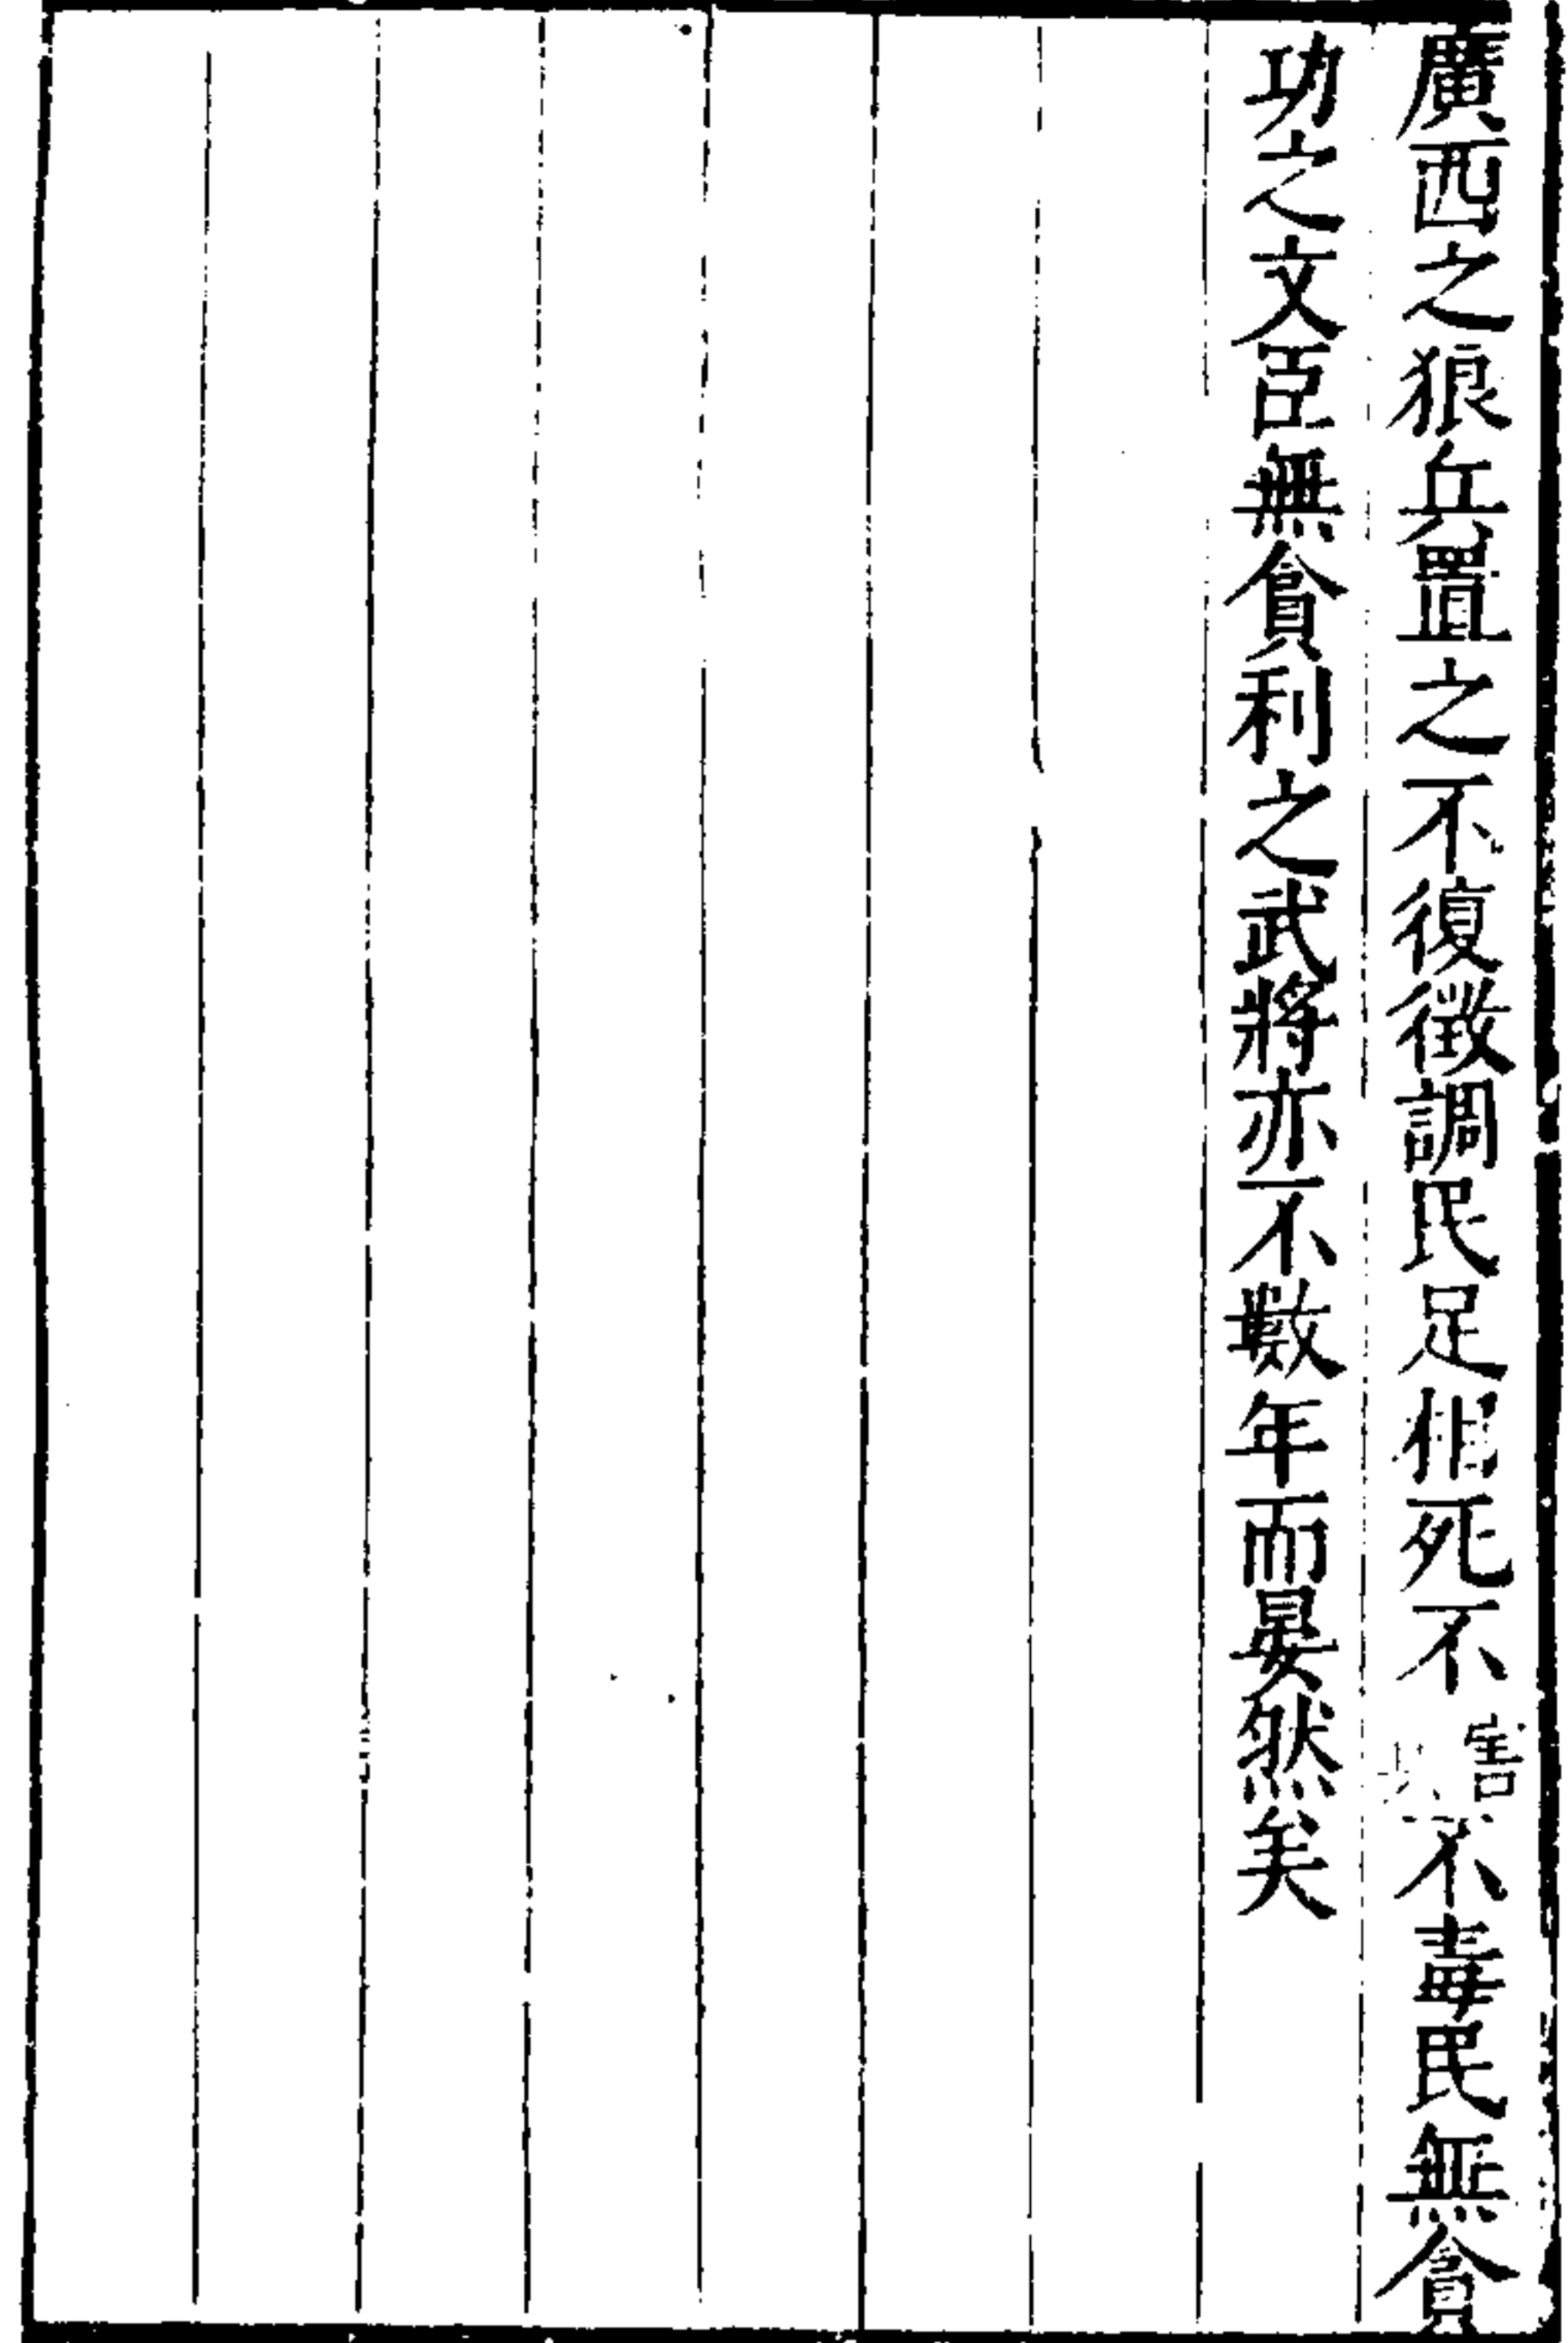 廣西之狼兵置之不復徵調民足相死不害不毒民無貪
功之文臣無貪利之武將亦不數年而晏然矣